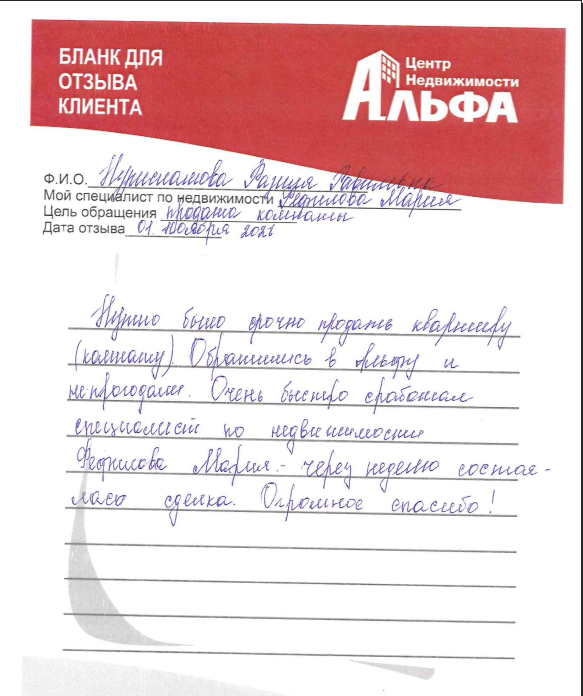 БЛАНК ДЛЯ
ОТЗЫВА
КЛИЕНТА
Центр
Недвижимости
АЛЬФА
Ф.И.О. Нурисламова Разиля Равиловна
Мой специалист по недвижимости Мария
Цель обращения продажа комнаты
Дата отзыва 01 ноября 2021
Нужно было срочно продать квартиру
(комнату) Обратились в Альфу и
не прогодали. Очень быстро сработал
специалист по недвижимости
Мария - через неделю состоя-
лась сделка. Огромное спасибо!